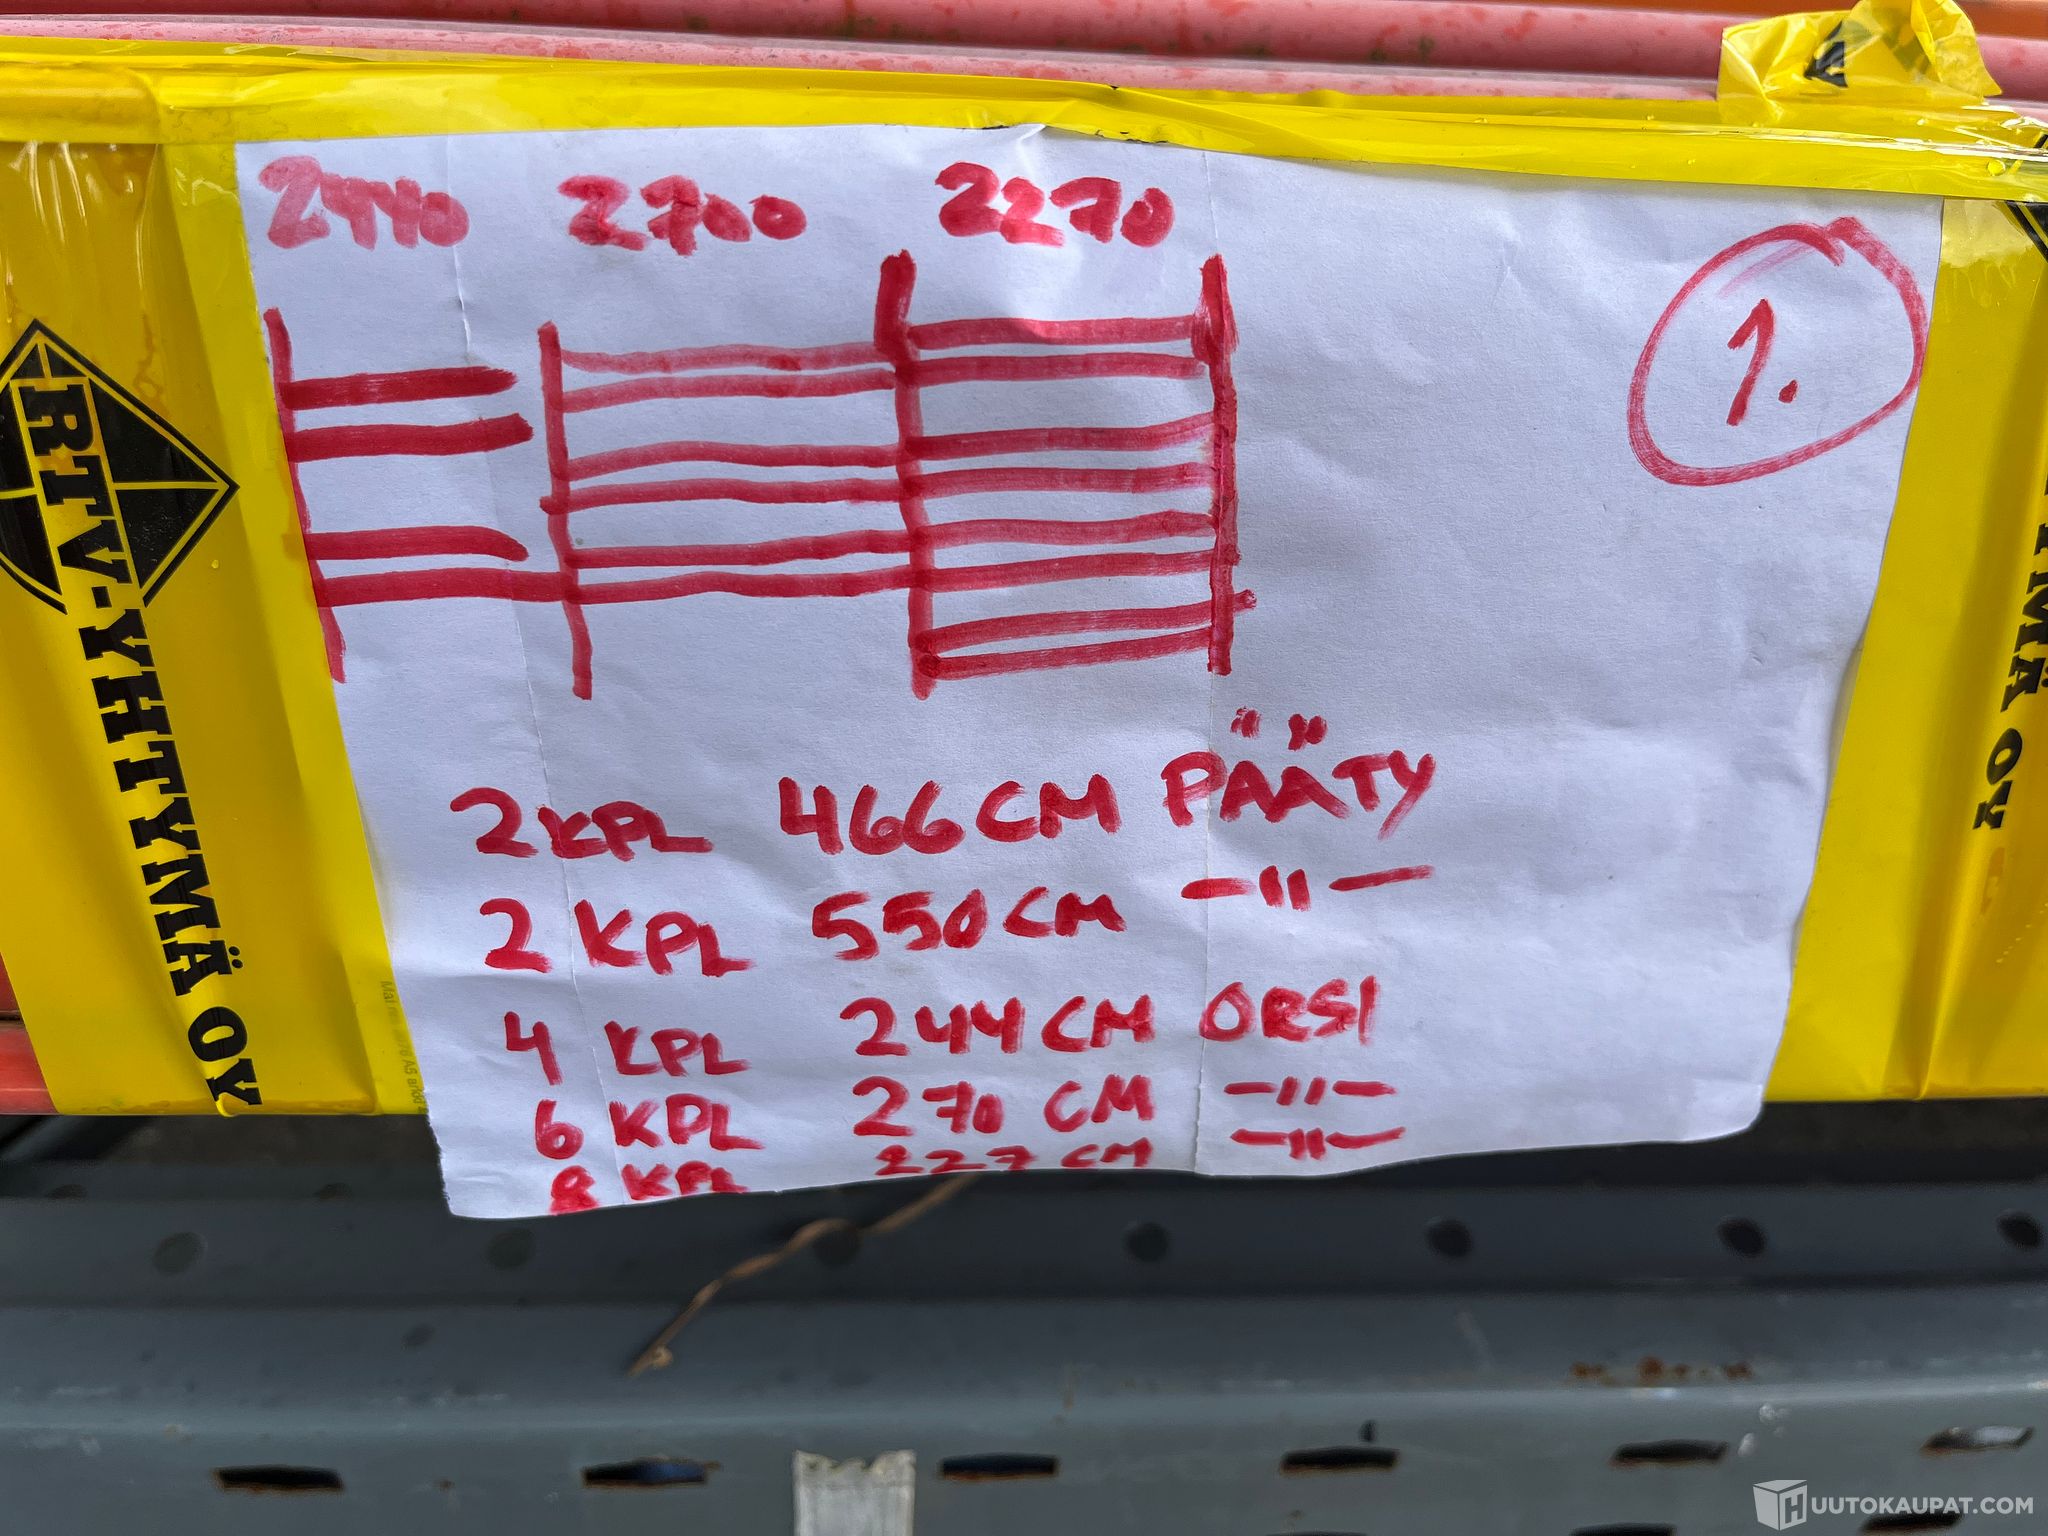 2440 2700 2270
1.
2 KPL 466 CM PÄÄTY
2 KPL 550 CM -"-
4 KPL 244 CM ORSI
6 KPL 270 CM -"-
8 KPL 227 CM -"-
RTV-YHTYMÄ OY
YMÄ OY
HUUTOKAUPAT.COM